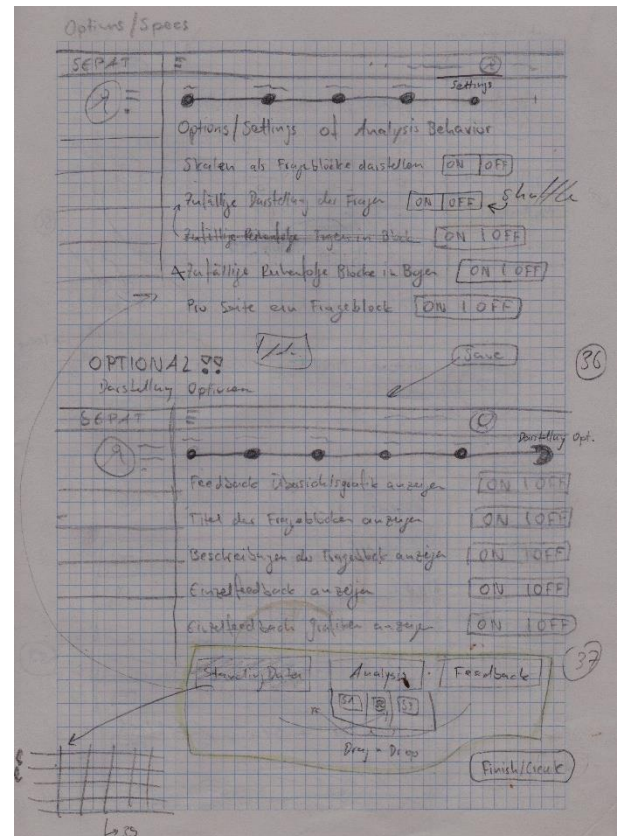 Options/Specs
SEPAT
Settings
Options/Settings of Analysis Behavior
Skalen als Frageblöcke darstellen ON OFF
Zufällige Darstellung der Fragen ON OFF Shuffle
Zufällige Reihenfolge Fragen in Block ON OFF
Zufällige Reihenfolge Blöcke in Bogen ON OFF
Pro Seite ein Frageblock ON OFF
OPTIONAL !!
Save
36
Darstellung Optionen
SEPAT
Darstellung Opt.
Feedback Übersichtsgrafik anzeigen ON OFF
Titel der Frageblöcken anzeigen ON OFF
Beschreibungen der Frageblock anzeigen ON OFF
Einzelfeedback anzeigen ON OFF
Einzelfeedback grafiken anzeigen ON OFF
37
Analysis Feedback
Drag n Drop
Finish/Create